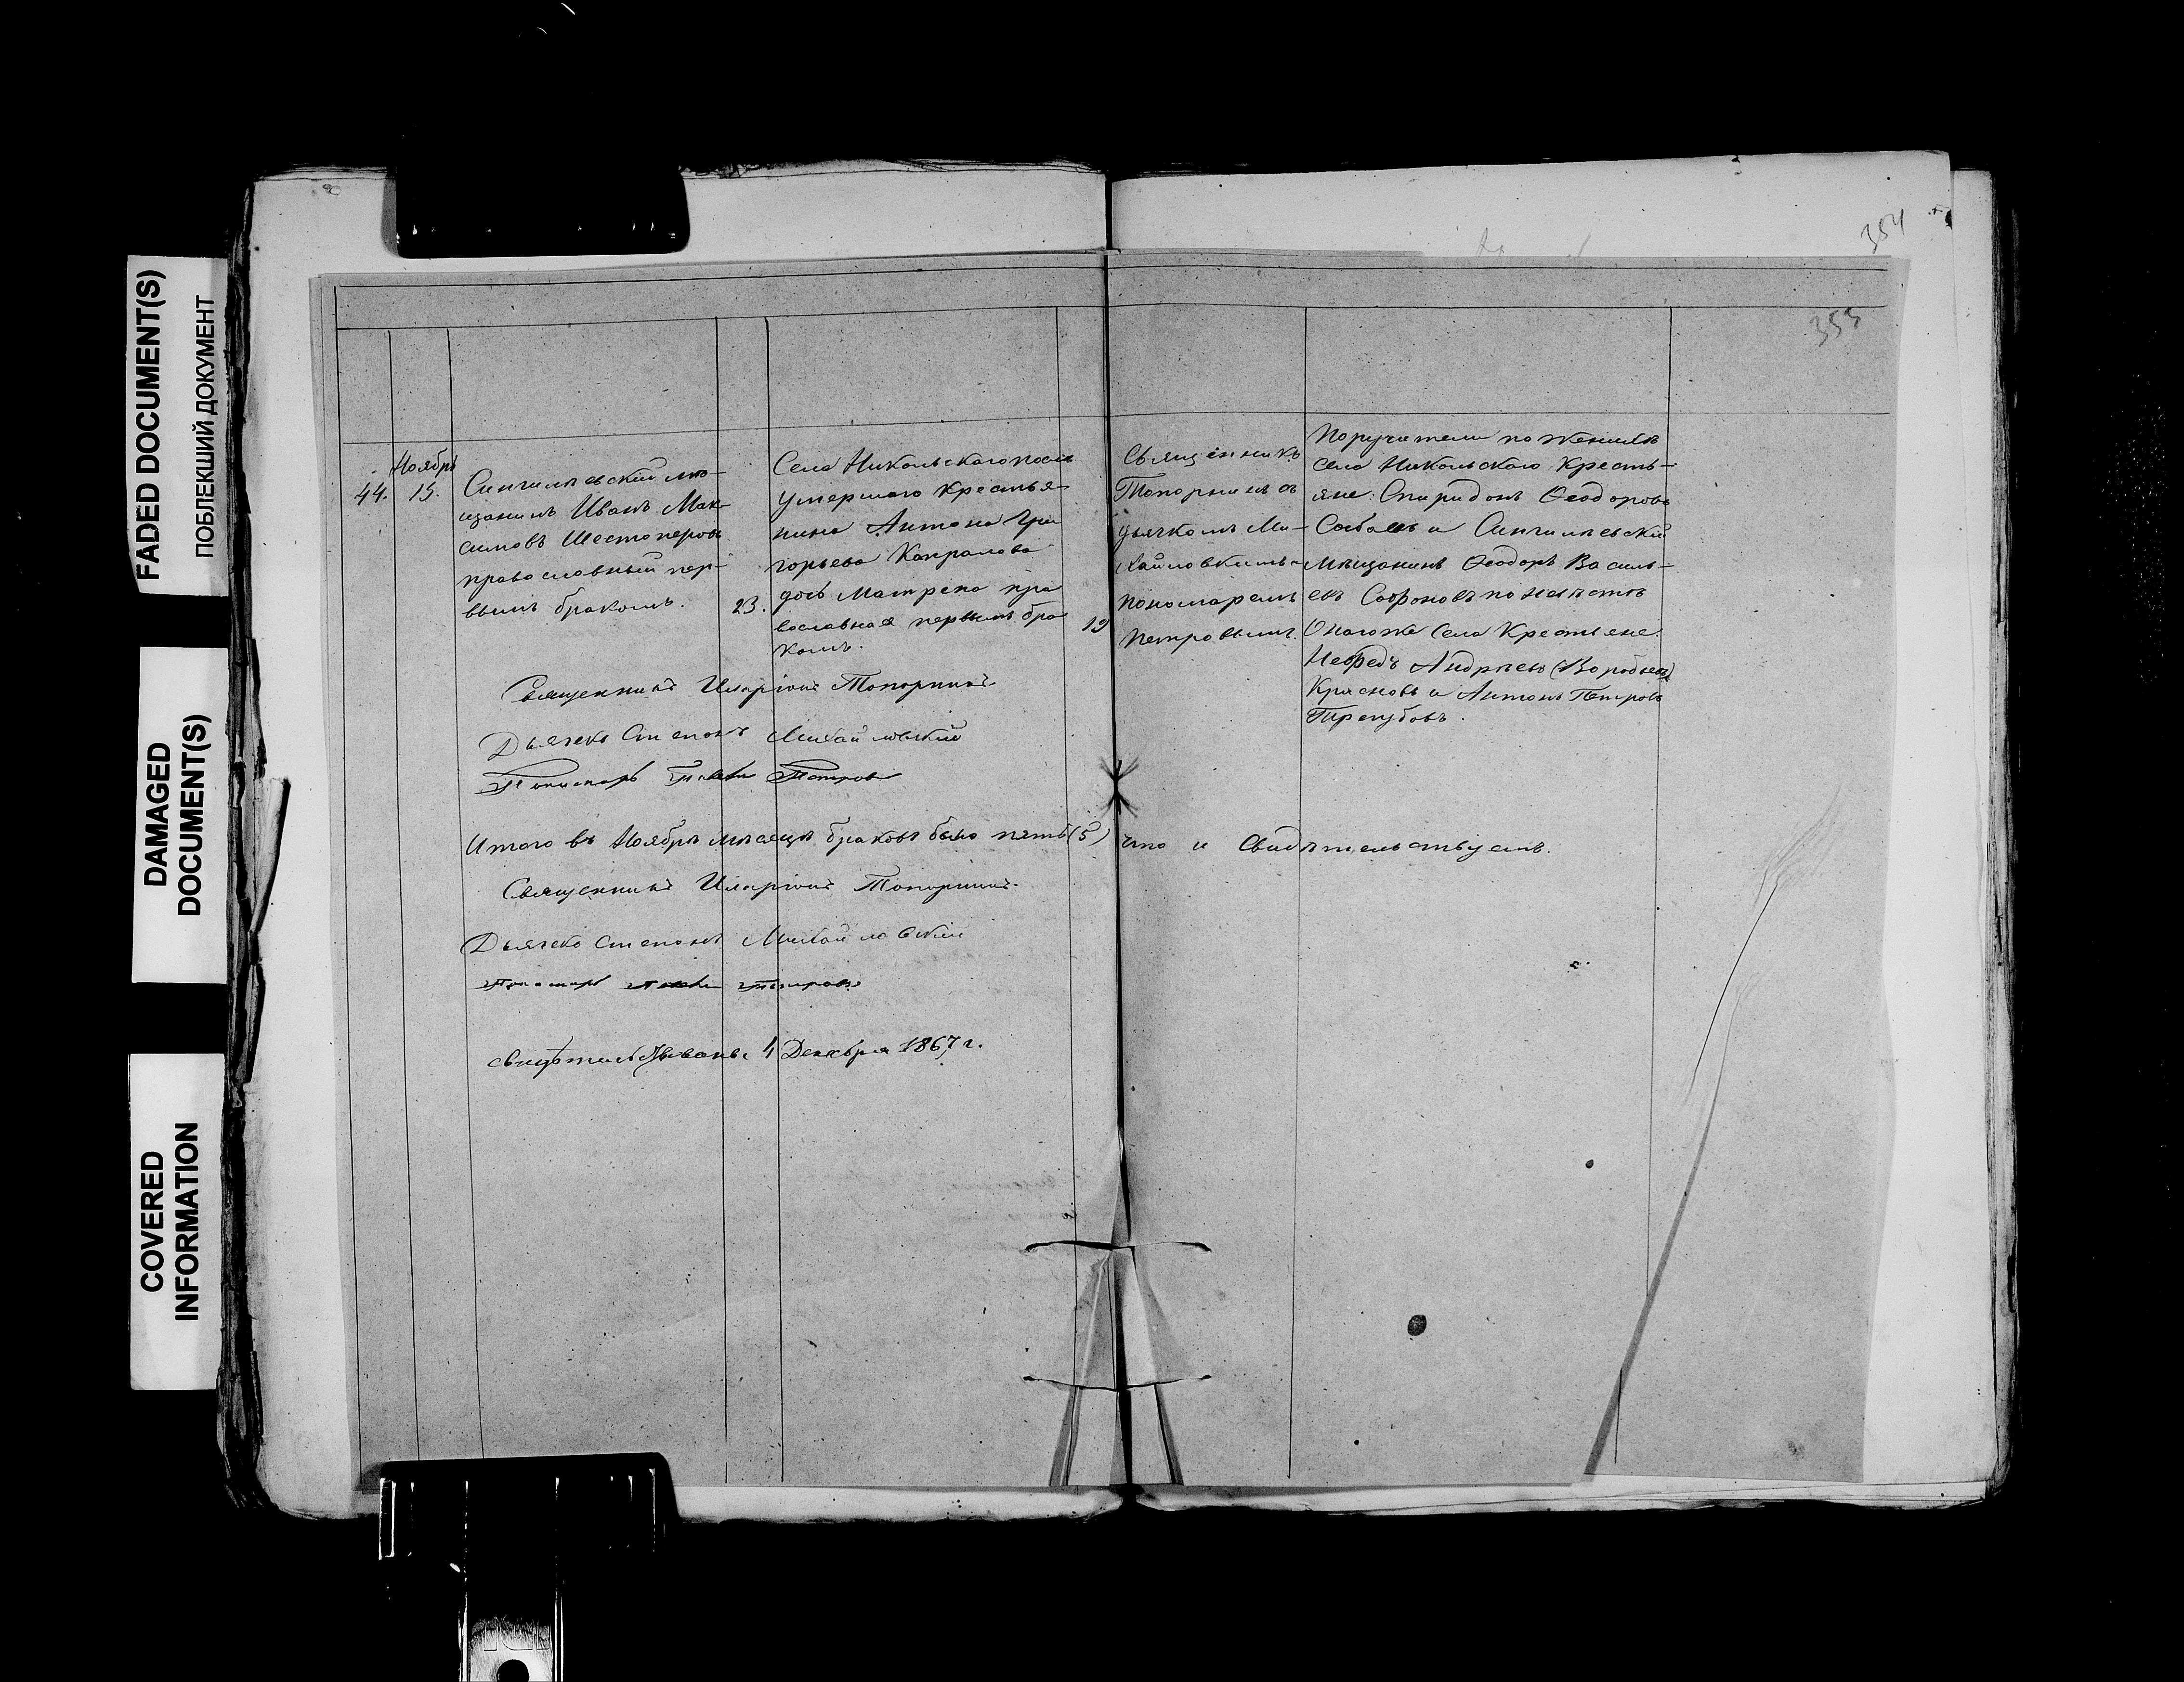 FADED DOCUMENT(S)
ПОБЛЕКШИЙ ДОКУМЕНТ
DAMAGED
DOCUMENT(S)
COVERED
INFORMATION
354
355
Ноября
44. 15.
Сингилѣевскій мѣ-
щанинъ Иванъ Мак-
симовъ Шестоперовъ
православный пер-
вымъ бракомъ.
23.
Села Никольскаго послѣ
умершаго Крестья-
нина Антона Гри
горьева Капралова
дочь Матрена пра
вославная первымъ бра
комъ.
19
Священникъ
Топорнинъ съ
дьячкомъ Ми-
хайловскимъ и
пономаремъ
Петровымъ.
Поручители по женихѣ
села Никольскаго Кресть-
яне: Спиридонъ Ѳеодоровъ
и Сингилѣевскій
мѣщанинъ Ѳеодоръ Василь-
евъ Софоновъ по невѣстѣ
Онагоже Села Крестьяне:
Нефедъ Андреевъ (Воробьевъ)
Красновъ и Антонъ Петровъ
Трегубовъ.
Священникъ Иларіонъ Топорнинъ
Дьячекъ Степанъ Михайловский
Пономарь Петров
Итого въ Ноябрѣ мѣсяцѣ браковъ было пять (5) что и свидѣтельствуемъ.
Священникъ Иларіонъ Топорнинъ.
Дьячекъ Степанъ Михайловский
Пономарь Петровъ
4 Декабря 1867 г.